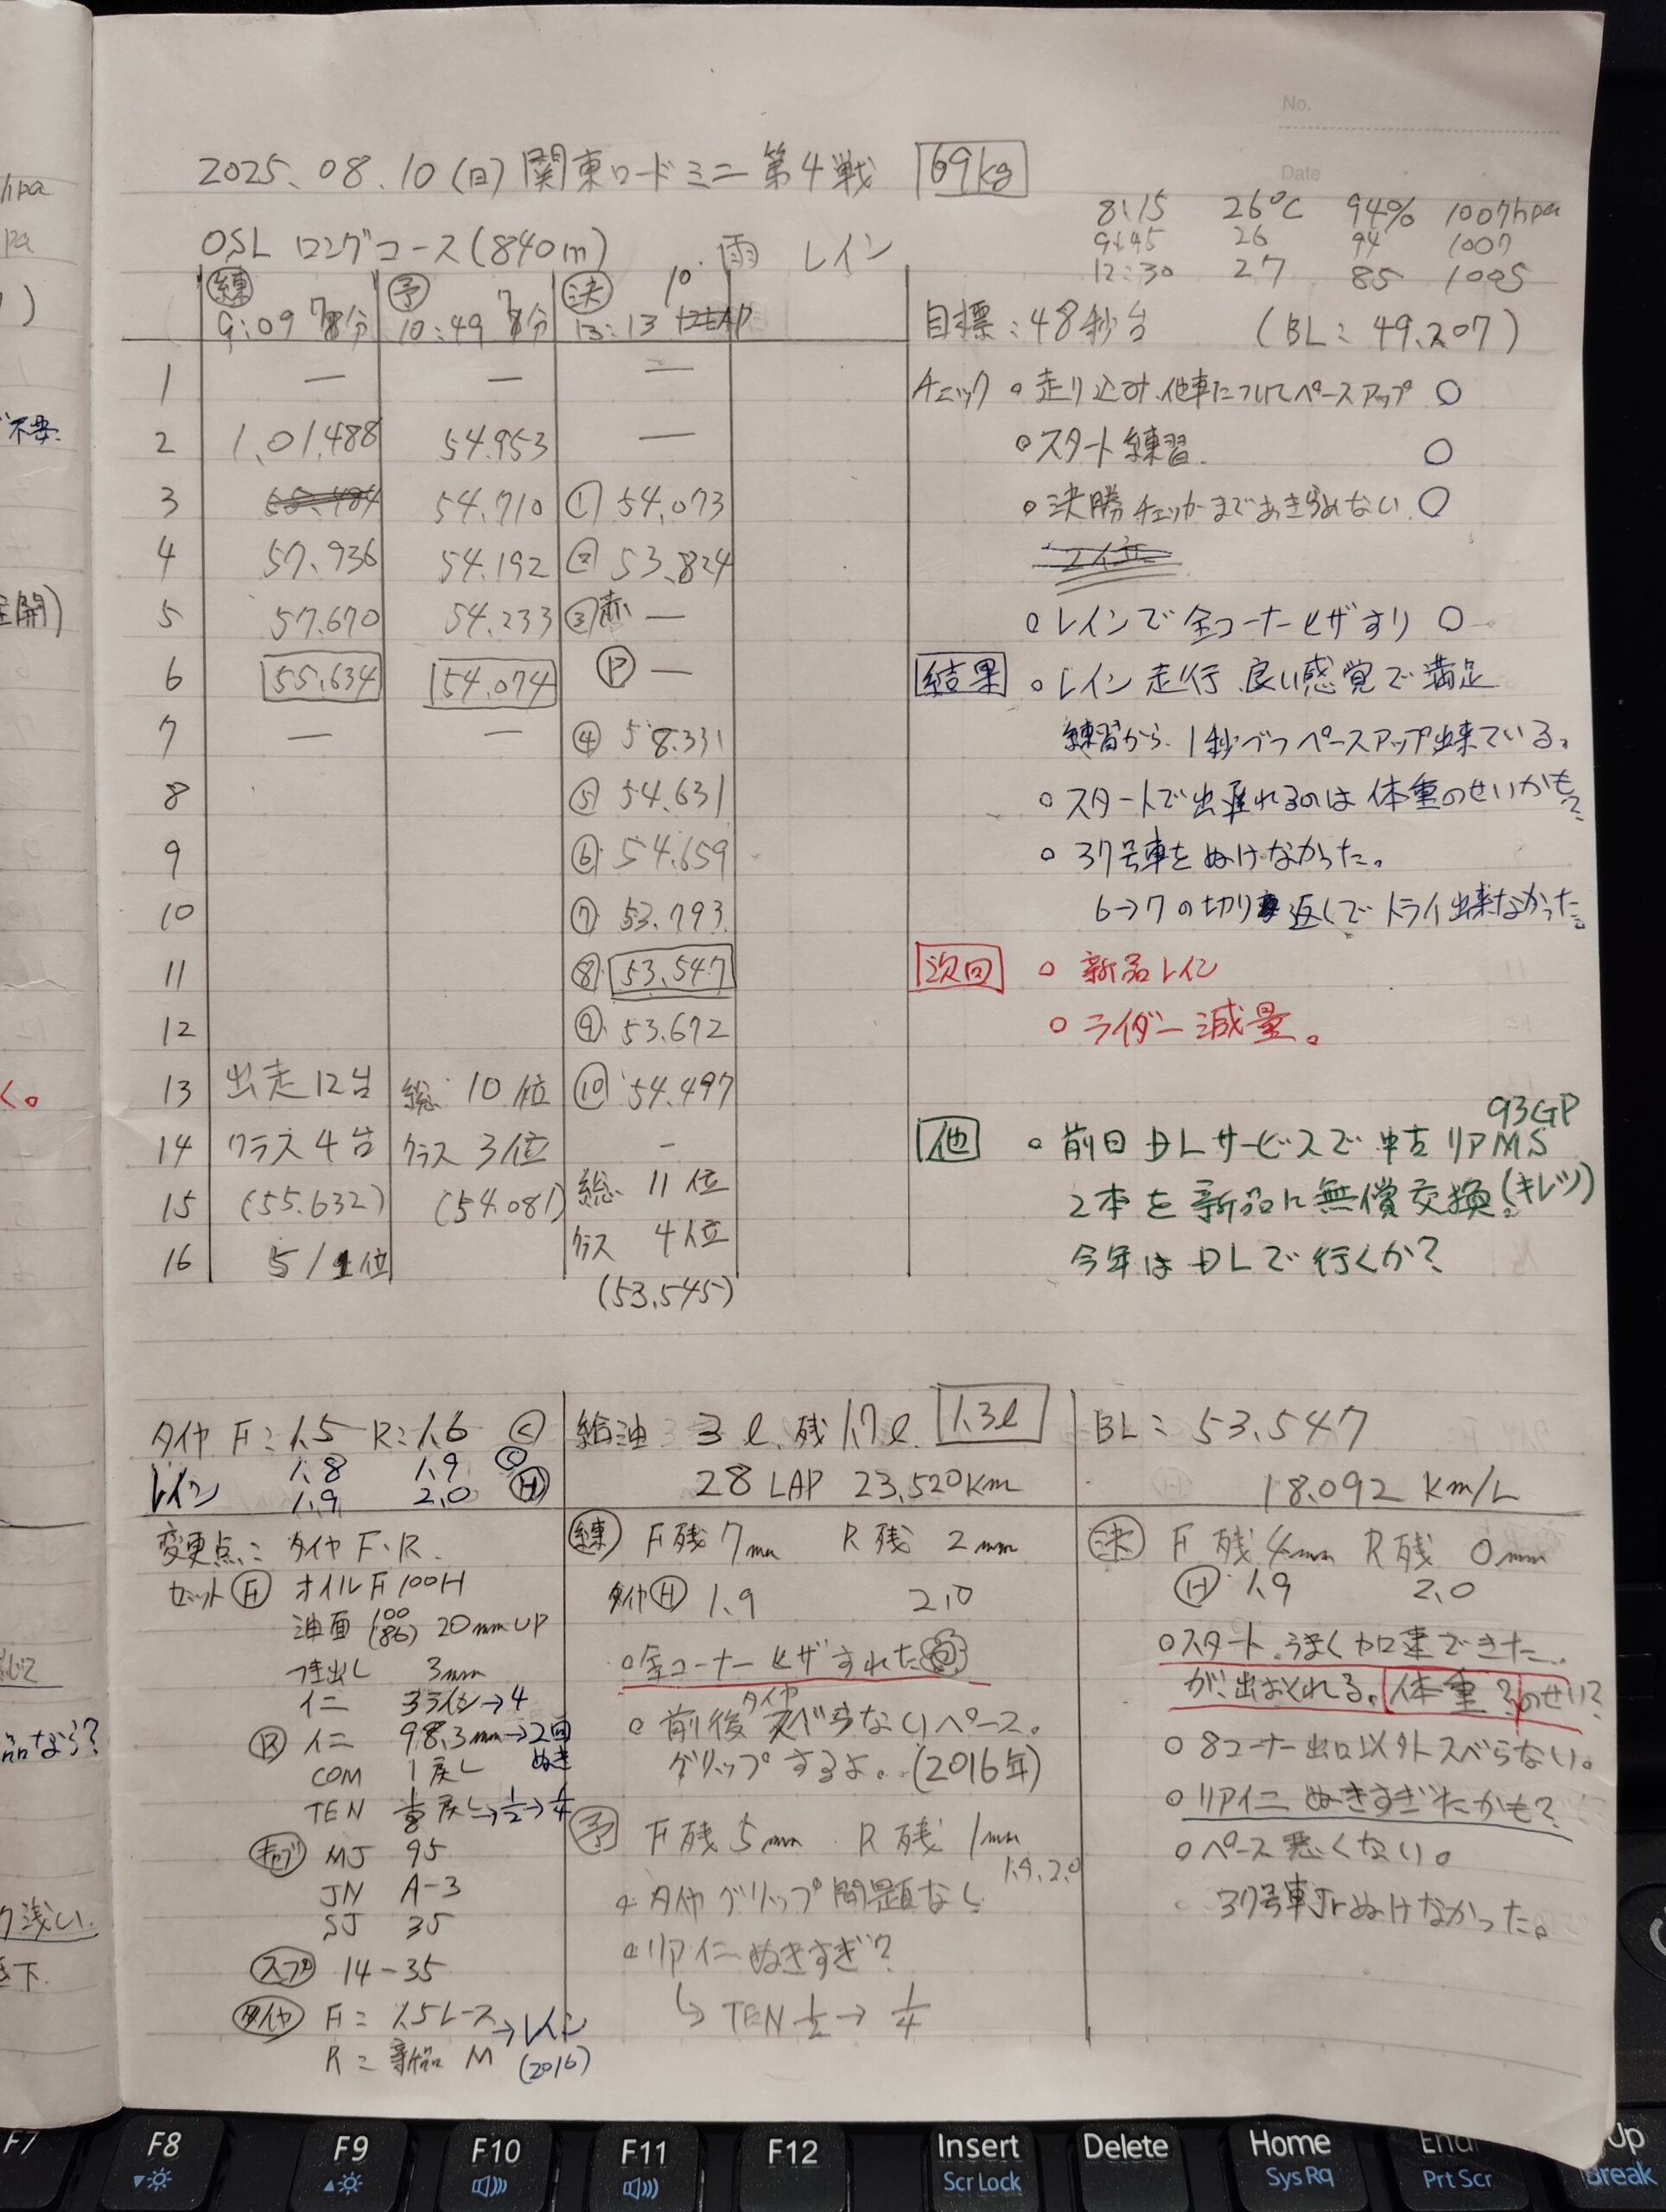 No.
Date
2025.08.10(日)関東ロードミニ第4戦 69kg
8:15 26℃ 94% 1007hpa
9:45 26 94 1007
12:30 27 85 1005
OSL ロングコース(840m) 雨 レイン
練 予 決
9:09 7分 10:49 7分 13:13 10
1 — — —
2 1.01.488 54.953 —
3 55.484 54.710 ① 54.073
4 57.936 54.192 ② 53.824
5 57.670 54.233 ③赤 —
6 55.634 54.074 Ⓟ —
7 — — ④ 58.331
8 ⑤ 54.631
9 ⑥ 54.659
10 ⑦ 53.793
11 ⑧ 53.547
12 ⑨ 53.672
13 出走12台 総 10位 ⑩ 54.497
14 クラス4台 クラス 3位 —
15 (55.632) (54.081) 総 11位
16 5/1位 クラス 4位
(53.545)
目標:48秒台 (BL: 49.207)
チェック ○走り込み、他車についてペースアップ ○
○スタート練習. ○
○決勝チェッカーまであきらめない ○
2位
○レインで全コーナーヒザすり ○
結果 ○レイン走行、良い感覚で満足
練習から、1秒づつペースアップ出来ている。
○スタートで出遅れるのは体重のせいかも?
○37号車をぬけなかった。
6→7の切り返しでトライ出来なかった。
次回 ○新品レイン
○ライダー減量。
93GP
他 ○前日DLサービスで中古リアMS
2本を新品に無償交換。(キレツ)
今年はDLで行くか?
タイヤ F=1.5 R=1.6 Ⓒ
レイン 1.8 1.9 Ⓒ
1.9 2.0 Ⓗ
給油 3ℓ. 残1.7ℓ. 1.3ℓ
28LAP 23.520Km
BL= 53.547
18.092 Km/L
変更点: タイヤF・R.
セット Ⓕ オイルF100H
油面 100(86) 20mmUP
突出し 3mm
イニ 3ライン→4
Ⓡ イニ 98.3mm→2回ぬき
COM 1戻し
TEN 1/8戻し→1/2→1/4
キャブ MJ 95
JN A-3
SJ 35
スプ 14-35
タイヤ F= 1.5レース→レイン
R= 新品 M (2016)
練 F残7mm R残 2mm
タイヤⒽ 1.9 2.0
○全コーナーヒザすれた
○前後タイヤスベらないペース。
グリップするよ。(2016年)
予 F残5mm R残 1mm
1.9.2.0
○タイヤグリップ問題なし
○リアイニぬきすぎ?
↳ TEN 1/2→ 1/4
決 F残4mm R残 0mm
Ⓗ 1.9 2.0
○スタートうまく加速できた
が、出おくれる。体重?のせい?
○8コーナー出口以外スベらない。
○リアイニぬきすぎたかも?
○ペース悪くない。
37号車Jrぬけなかった。
hpa
pa
)
不要.
全開)
く。
品なら?
り浅い.
下.
F7
F8
F9
F10
F11
F12
Insert
Scr Lock
Delete
Home
Sys Rq
End
Prt Scr
Up
Break